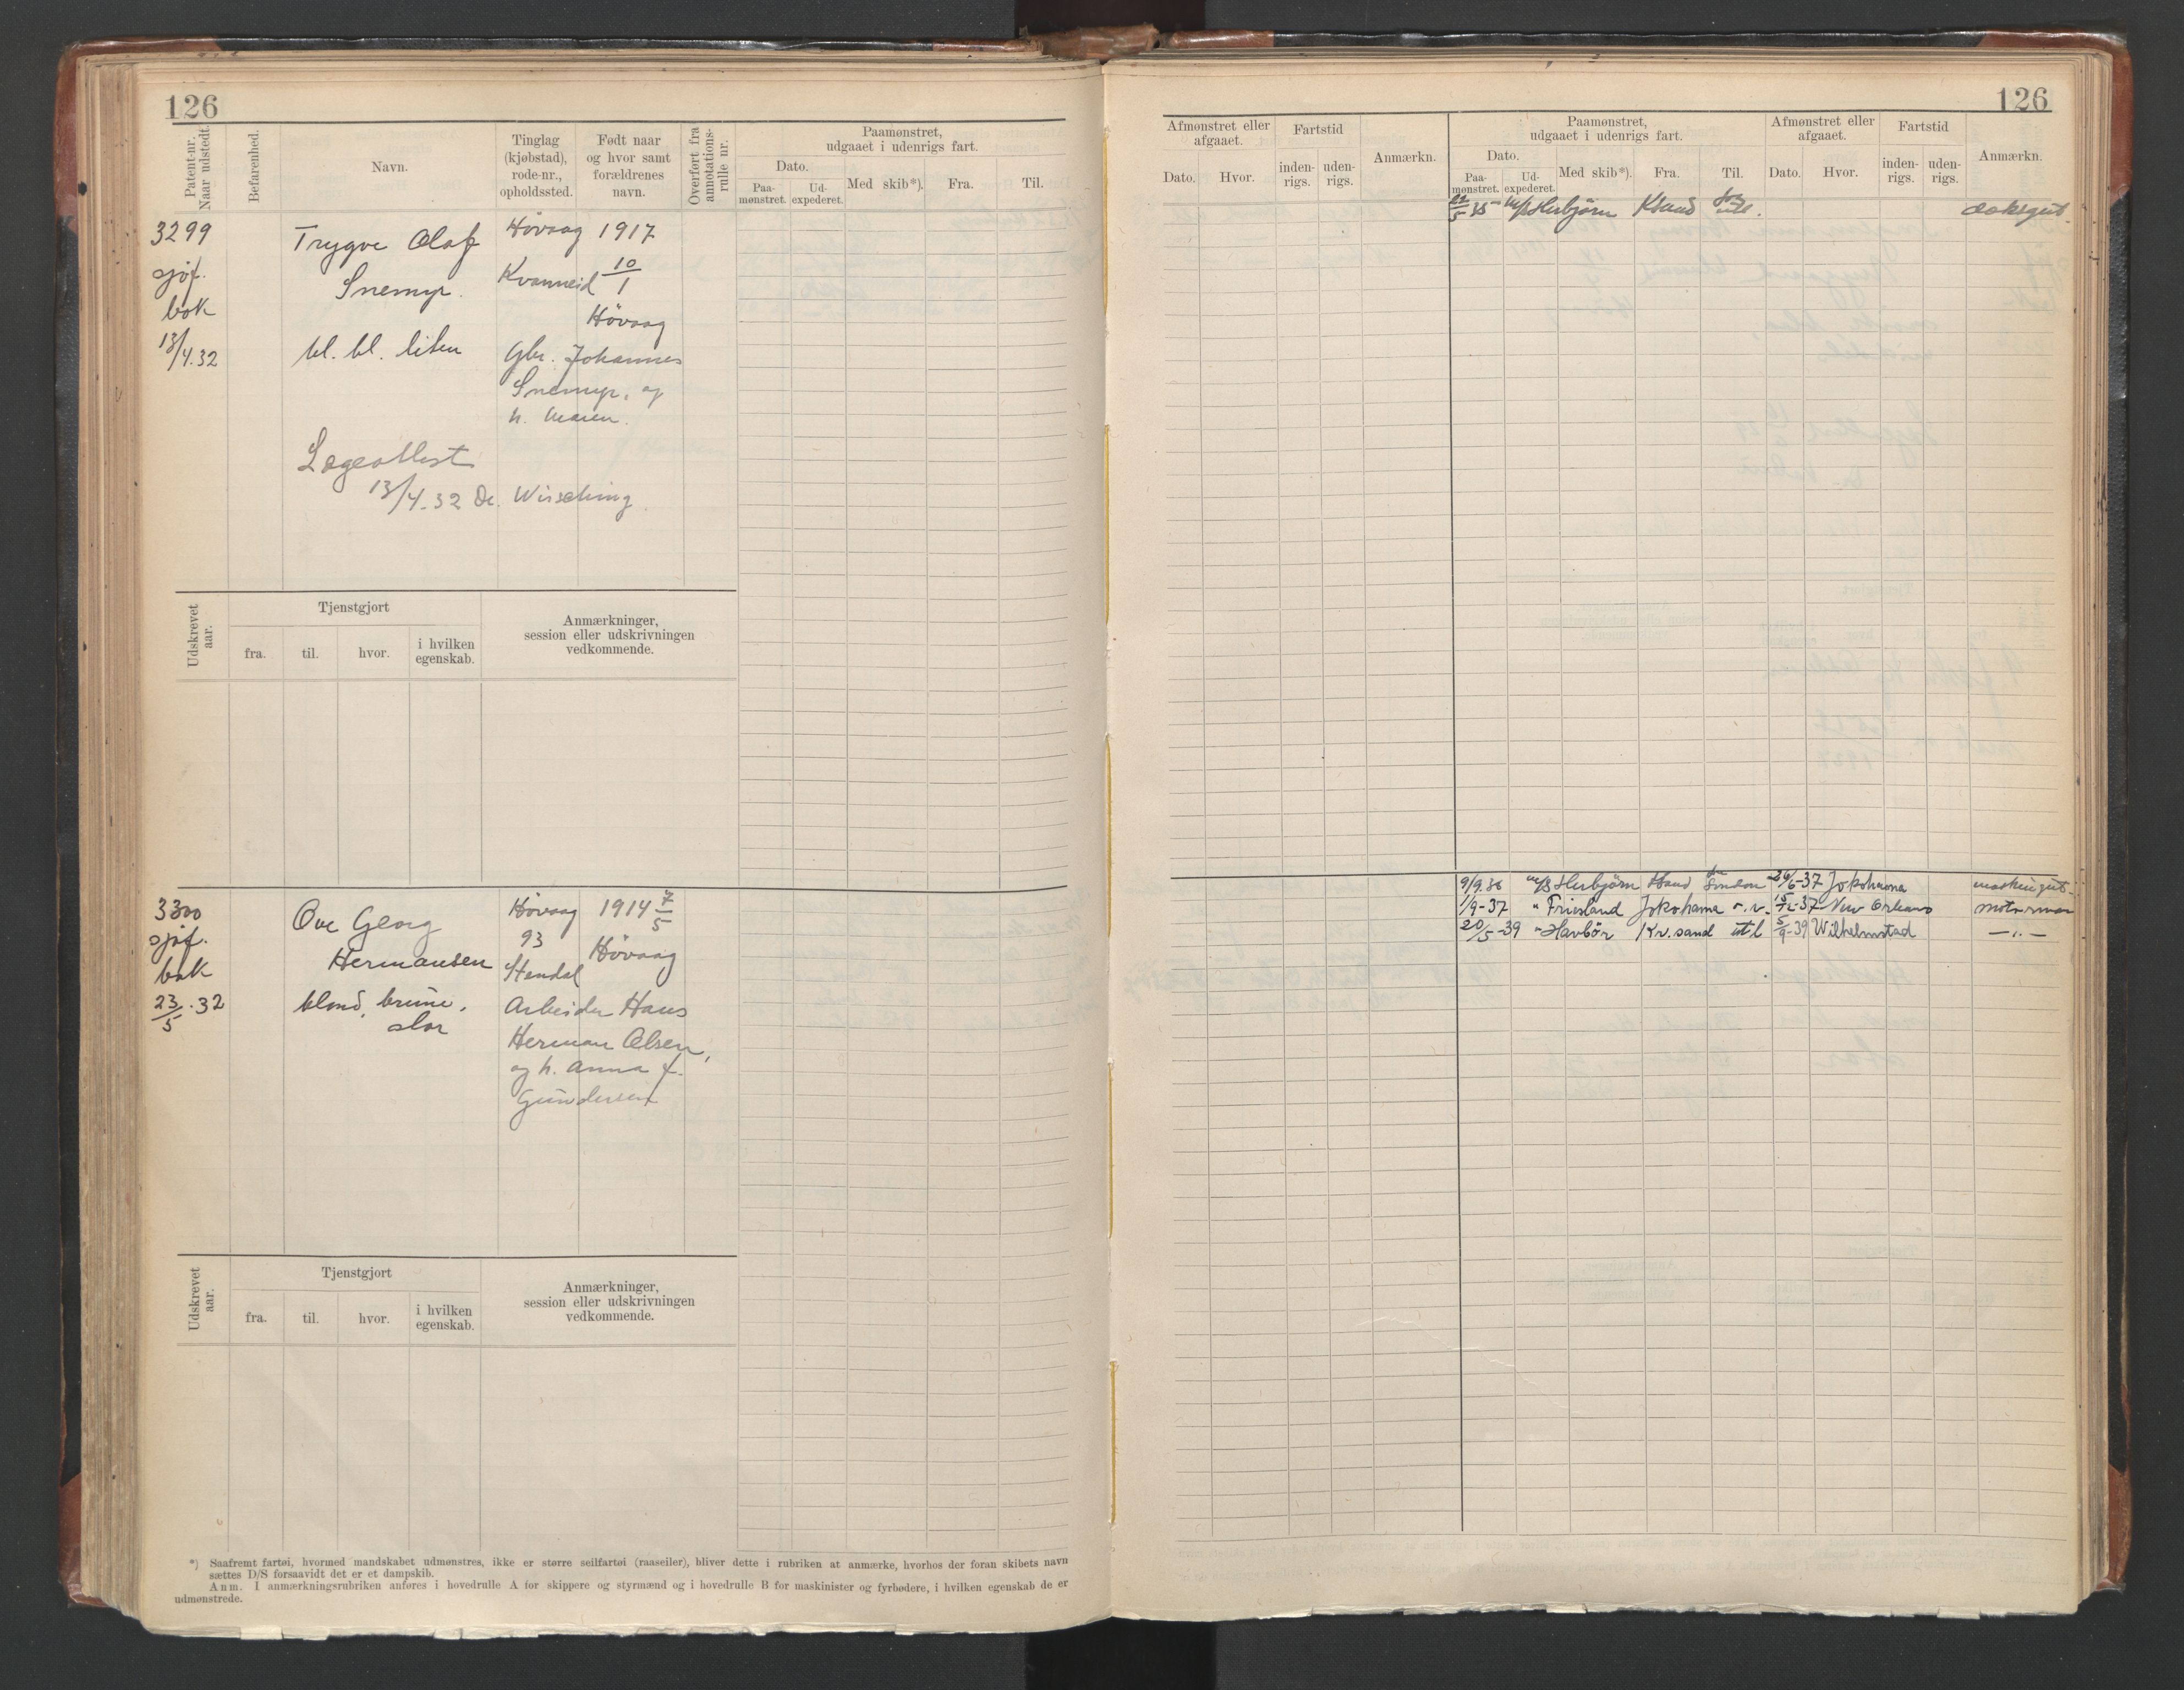 126
Patent-nr.
Naar udstedt.
Befarenhed.
Navn.
Tinglag
(kjøbstad),
rode-nr.,
opholdssted.
Født naar
og hvor samt
forældrenes
navn.
Overført fra
annotations-
rulle nr.
Paamønstret,
udgaaet i udenrigs fart.
Dato.
Paa-
mønstret.
Ud-
expederet.
Med skib*).
Fra.
Til.
3299
sjøf.
bok
13/4.32
Trygve Olaf
Snemyr.
bl. bl. liten
Høvaag 1917
Kvanneid 10/1
Høvaag
Gbr. Johannes
Snemyr, og
h. Maren.
Lægeattest
13/4.32 Dr. Wirsching
Udskrevet
aar.
Tjenstgjort
fra.
til.
hvor.
i hvilken
egenskab.
Anmærkninger,
session eller udskrivningen
vedkommende.
3300
sjøf.
bok
23/5.32
Ove Georg
Hermansen
blond, brune,
stor
Høvaag 1914 7/5
93
Høvaag
Stendal
Arbeider Hans
Herman Olsen,
og h. Anna f.
Gundersen
Udskrevet
aar.
Tjenstgjort
fra.
til.
hvor.
i hvilken
egenskab.
Anmærkninger,
session eller udskrivningen
vedkommende.
*) Saafremt fartøi, hvormed mandskabet udmønstres, ikke er større seilfartøi (raaseiler), bliver dette i rubriken at anmærke, hvorhos der foran skibets navn
sættes D/S forsaavidt det er et dampskib.
Anm. I anmærkningsrubriken anføres i hovedrulle A for skippere og styrmænd og i hovedrulle B for maskinister og fyrbødere, i hvilken egenskab de er
udmønstrede.
126
Afmønstret eller
afgaaet.
Dato.
Hvor.
Fartstid
inden-
rigs.
uden-
rigs.
Anmærkn.
Paamønstret,
udgaaet i udenrigs fart.
Dato.
Paa-
mønstret.
Ud-
expederet.
Med skib*).
Fra.
Til.
Afmønstret eller
afgaaet.
Dato.
Hvor.
Fartstid
inden-
rigs.
uden-
rigs.
Anmærkn.
35 M/S Herbjørn Ksand dæksgut.
9/9.36 M/S Herbjørn London 6-37 Jokohama maskingut.
1/9-37 " Friesland Jokohama 37 New Orleans motormann
20/5-39 " Havbør Kr.sand utl 5/9-39 Wilhelmstad —"—